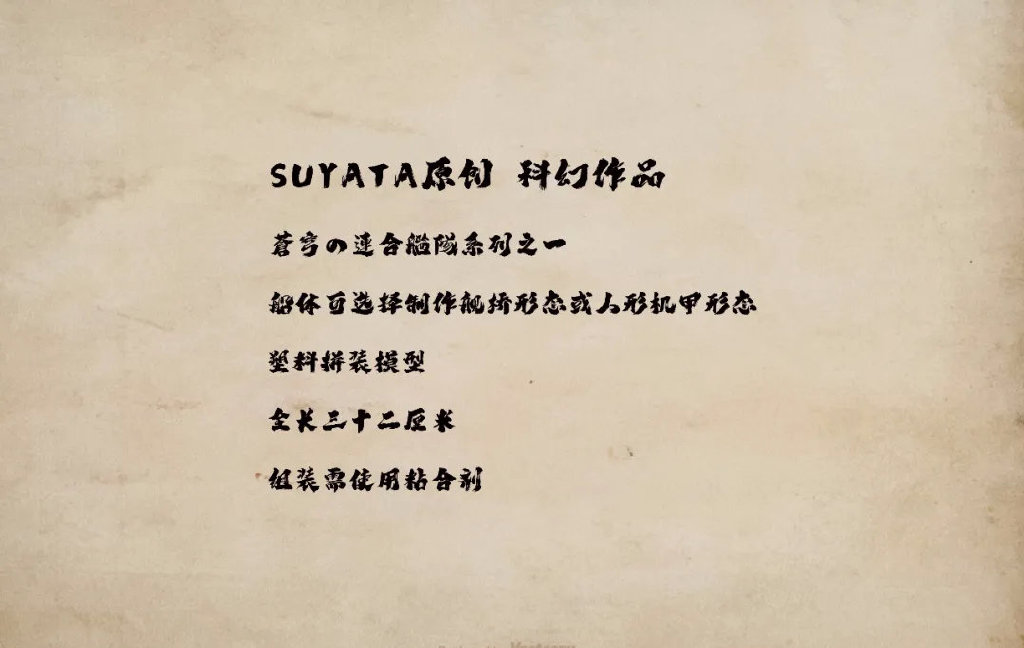 SUYATA原创 科幻作品
蒼穹の連合艦隊系列之一
船体可选择制作舰娇形态或人形机甲形态
塑料拼装模型
全长三十二厘米
组装需使用粘合剂